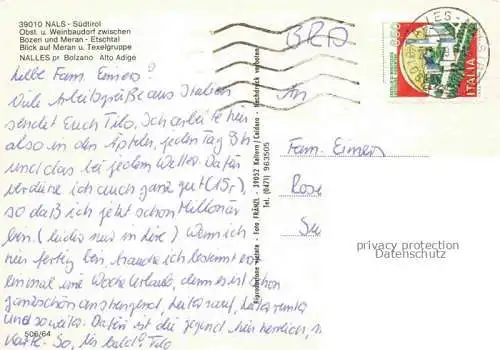 39010 NALS - Südtirol
Obst. u. Weinbaudorf zwischen
Bozen und Meran - Etschtal
Blick auf Meran u. Texelgruppe
NALLES pr. Bolzano Alto Adige
Liebe Fam. Eimers!
Viele Arbeitsgrüße aus Italien
sendet Euch Tilo. Ich arbeite hier
also in den Äpfeln, jeden Tag 9h
und das bei jedem Wetter. Dafür
verdiene ich auch ganz gut
so daß ich jetzt schon Millionär
bin (leider nur in Lire) Wenn ich
hier fertig bin, brauche ich bestimmt erst
einmal eine Woche Urlaub, denn es ist schon
ganz schön anstrengend, Leiter rauf, Leiter runter
und so weiter. Dafür ist die Gegend hier herrlich, s.
Karte. So, bis bald! Tilo
506/64
Eigroduzione vietata - Foto FRÄNZL - 39052 Kaltern / Caldaro - Nachdruck verboten
Tel. (0471) 963505
BRD
An
Fam. Eimers
Rose
ITALIA
850
privacy protection
Datenschutz